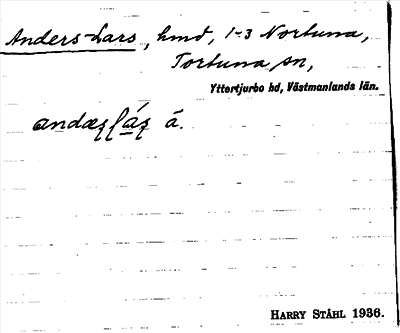 Anders-Lars, hmd, 1-3 Nortuna,
Tortuna sn,
Yttertjurbo hd, Västmanlands län.
á.
HARRY STÅHL 1936.